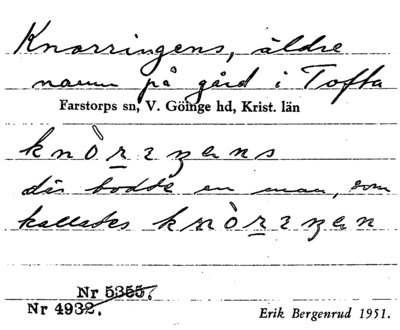 Knorringens, äldre
namn på gård i Tofta
Farstorps sn, V. Göinge hd, Krist. län
knòrɪŋens
där bodde en man, som
kallades knòrɪŋen
Nr 5355.
Nr 4932.
Erik Bergenrud 1951.